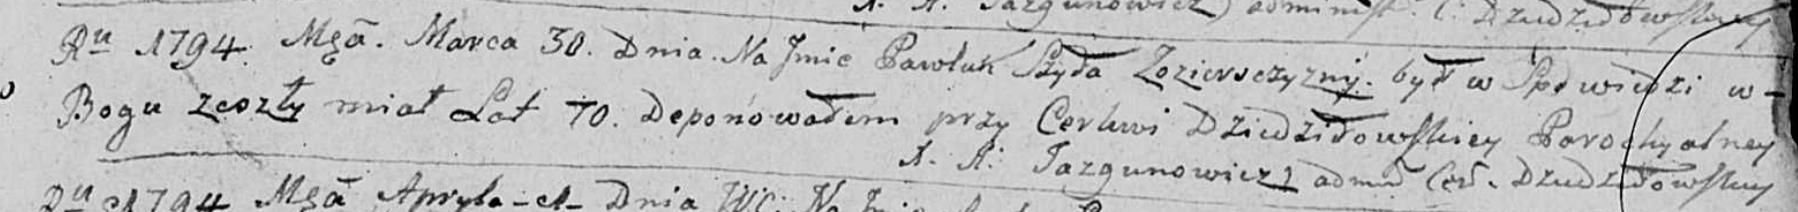 X. A. Jazgunowicz) administ. C. Dziedziłowskiey
Rᵘ 1794. Msā. Marca 30. Dnia. Na Jmie Pawluk Szyda Zozierszczyzny. był w Spowiedzi w-
Bogu zeszły miał Lat 70. Deponowałem przy Cerkwi Dziedziłowskiey Parochyalney
X. A. Jazgunowicz) admi Cer. Dziedziłowskiey
Rᵘ 1794 Msā Apryla Dnia Na Jmie